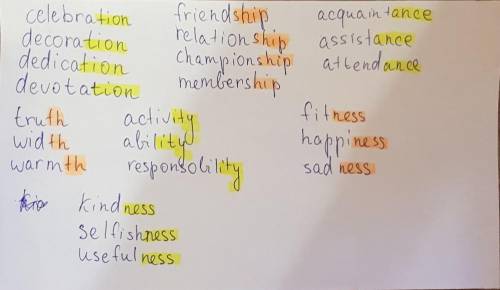 celebration friendship acquaintance
decoration relationship assistance
dedication championship attendance
devotation membership
truth activity fitness
width ability happiness
warmth responsobility sadness
kindness
selfishness
usefulness